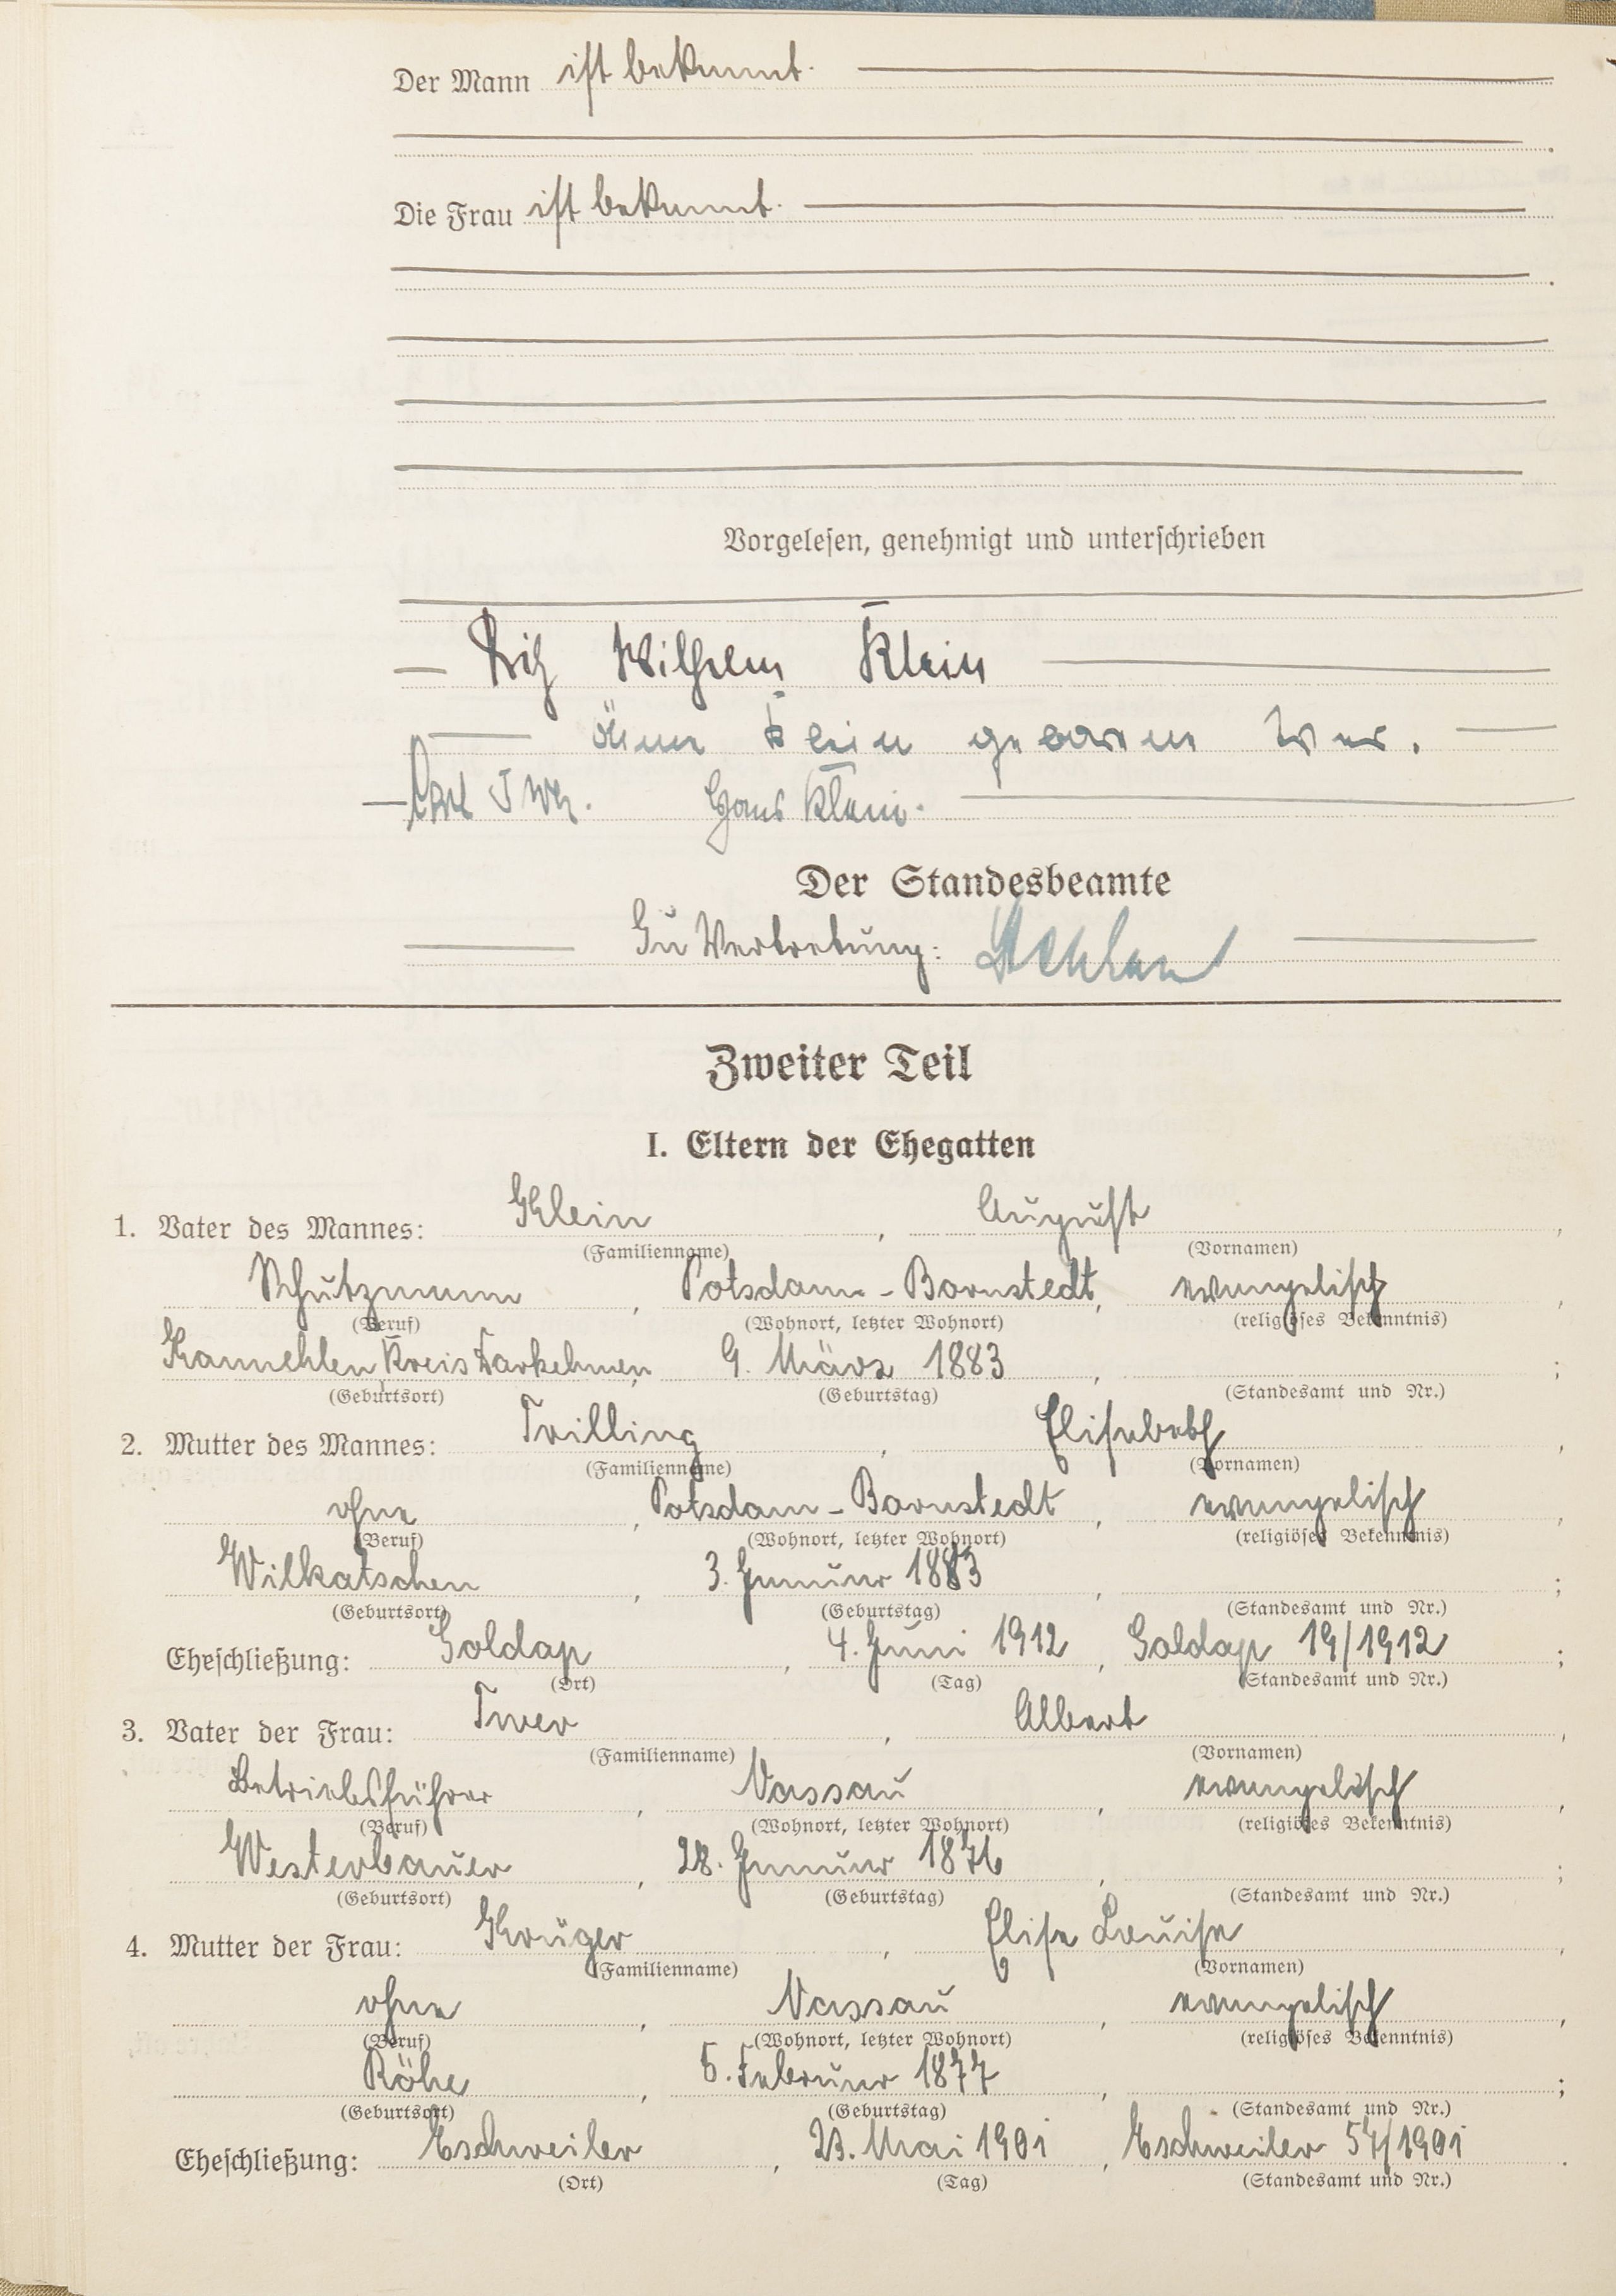 Der Mann ist bekannt.
Die Frau ist bekannt.
Vorgelesen, genehmigt und unterschrieben
Wilhelm Klein
Klein geboren
Hans Klein.
Der Standesbeamte
In Vertretung:
Zweiter Teil
I. Eltern der Ehegatten
1. Vater des Mannes: Klein, August,
(Familienname) (Vornamen)
Schutzmann, Potsdam-Bornstedt, evangelisch,
(Beruf) (Wohnort, letzter Wohnort) (religiöses Bekenntnis)
Kannehlen Kreis Darkehmen, 9. März 1883, ;
(Geburtsort) (Geburtstag) (Standesamt und Nr.)
2. Mutter des Mannes: Trilling, Elisabeth,
(Familienname) (Vornamen)
ohne, Potsdam-Bornstedt, evangelisch,
(Beruf) (Wohnort, letzter Wohnort) (religiöses Bekenntnis)
Wilkatschen, 3. Januar 1883, ;
(Geburtsort) (Geburtstag) (Standesamt und Nr.)
Eheschließung: Goldap, 4. Juni 1912, Goldap 19/1912;
(Ort) (Tag) (Standesamt und Nr.)
3. Vater der Frau: Twer, Albert,
(Familienname) (Vornamen)
Betriebsführer, Nassau, evangelisch,
(Beruf) (Wohnort, letzter Wohnort) (religiöses Bekenntnis)
Westerbauer, 28. Januar 1876, ;
(Geburtsort) (Geburtstag) (Standesamt und Nr.)
4. Mutter der Frau: Krüger, Elise Louise,
(Familienname) (Vornamen)
ohne, Nassau, evangelisch,
(Beruf) (Wohnort, letzter Wohnort) (religiöses Bekenntnis)
Röhe, 5. Februar 1877, ;
(Geburtsort) (Geburtstag) (Standesamt und Nr.)
Eheschließung: Eschweiler, 23. Mai 1901, Eschweiler 57/1901.
(Ort) (Tag) (Standesamt und Nr.)